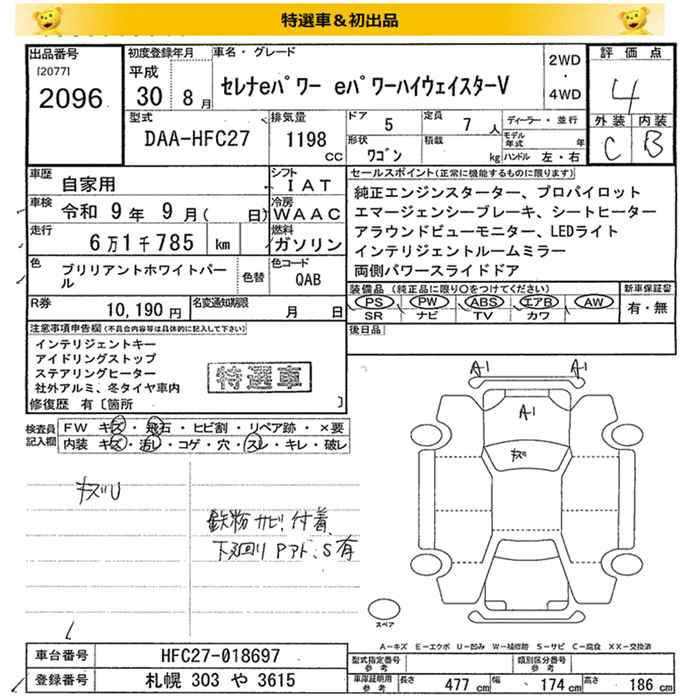 特選車&初出品
出品番号
[2077]
2096
初度登録年月
平成
30 8月
車名・グレード
セレナeパワー eパワーハイウェイスターV
2WD
・
4WD
評価点
4
外装 内装
C B
型式
DAA-HFC27
排気量
1198
CC
ドア 5
定員 7 人
形状 ワゴン
積載 kg
ディーラー・並行
モデル年式 年
ハンドル 左・右
車歴 自家用
シフト IAT
車検 令和 9年 9月( 日)
冷房 WAAC
走行 6万1千785 km
燃料 ガソリン
色 ブリリアントホワイトパール
色替
色コード QAB
R券 10,190円
名変通知期限 月 日
セールスポイント(正常に機能するものに限ります)
純正エンジンスターター、プロパイロット
エマージェンシーブレーキ、シートヒーター
アラウンドビューモニター、LEDライト
インテリジェントルームミラー
両側パワースライドドア
装備品(純正品に限り○をつけてください)
新車保証書
PS PW ABS エアB AW
SR ナビ TV カワ
有・無
後日品
注意事項申告欄(不具合内容等は具体的に記入して下さい)
インテリジェントキー
アイドリングストップ
ステアリングヒーター
社外アルミ、冬タイヤ車内
特選車
修復歴 有〔箇所 〕
検査員記入欄
FW キズ・飛石・ヒビ割・リペア跡・×要
内装 キズ・汚レ・コゲ・穴・スレ・キレ・破レ
キズU
鉄粉サビ付着、
下廻りPアト、S有
A-1 A-1
A-1
スペア
A-キズ E-エクボ U-凹み W-補修跡 S-サビ C-腐食 XX-交換済
車台番号 HFC27-018697
登録番号 札幌 303 や 3615
型式指定番号 参考
類別区分番号 参考
車庫証明用参考
長さ 477 cm
幅 174 cm
高さ 186 cm